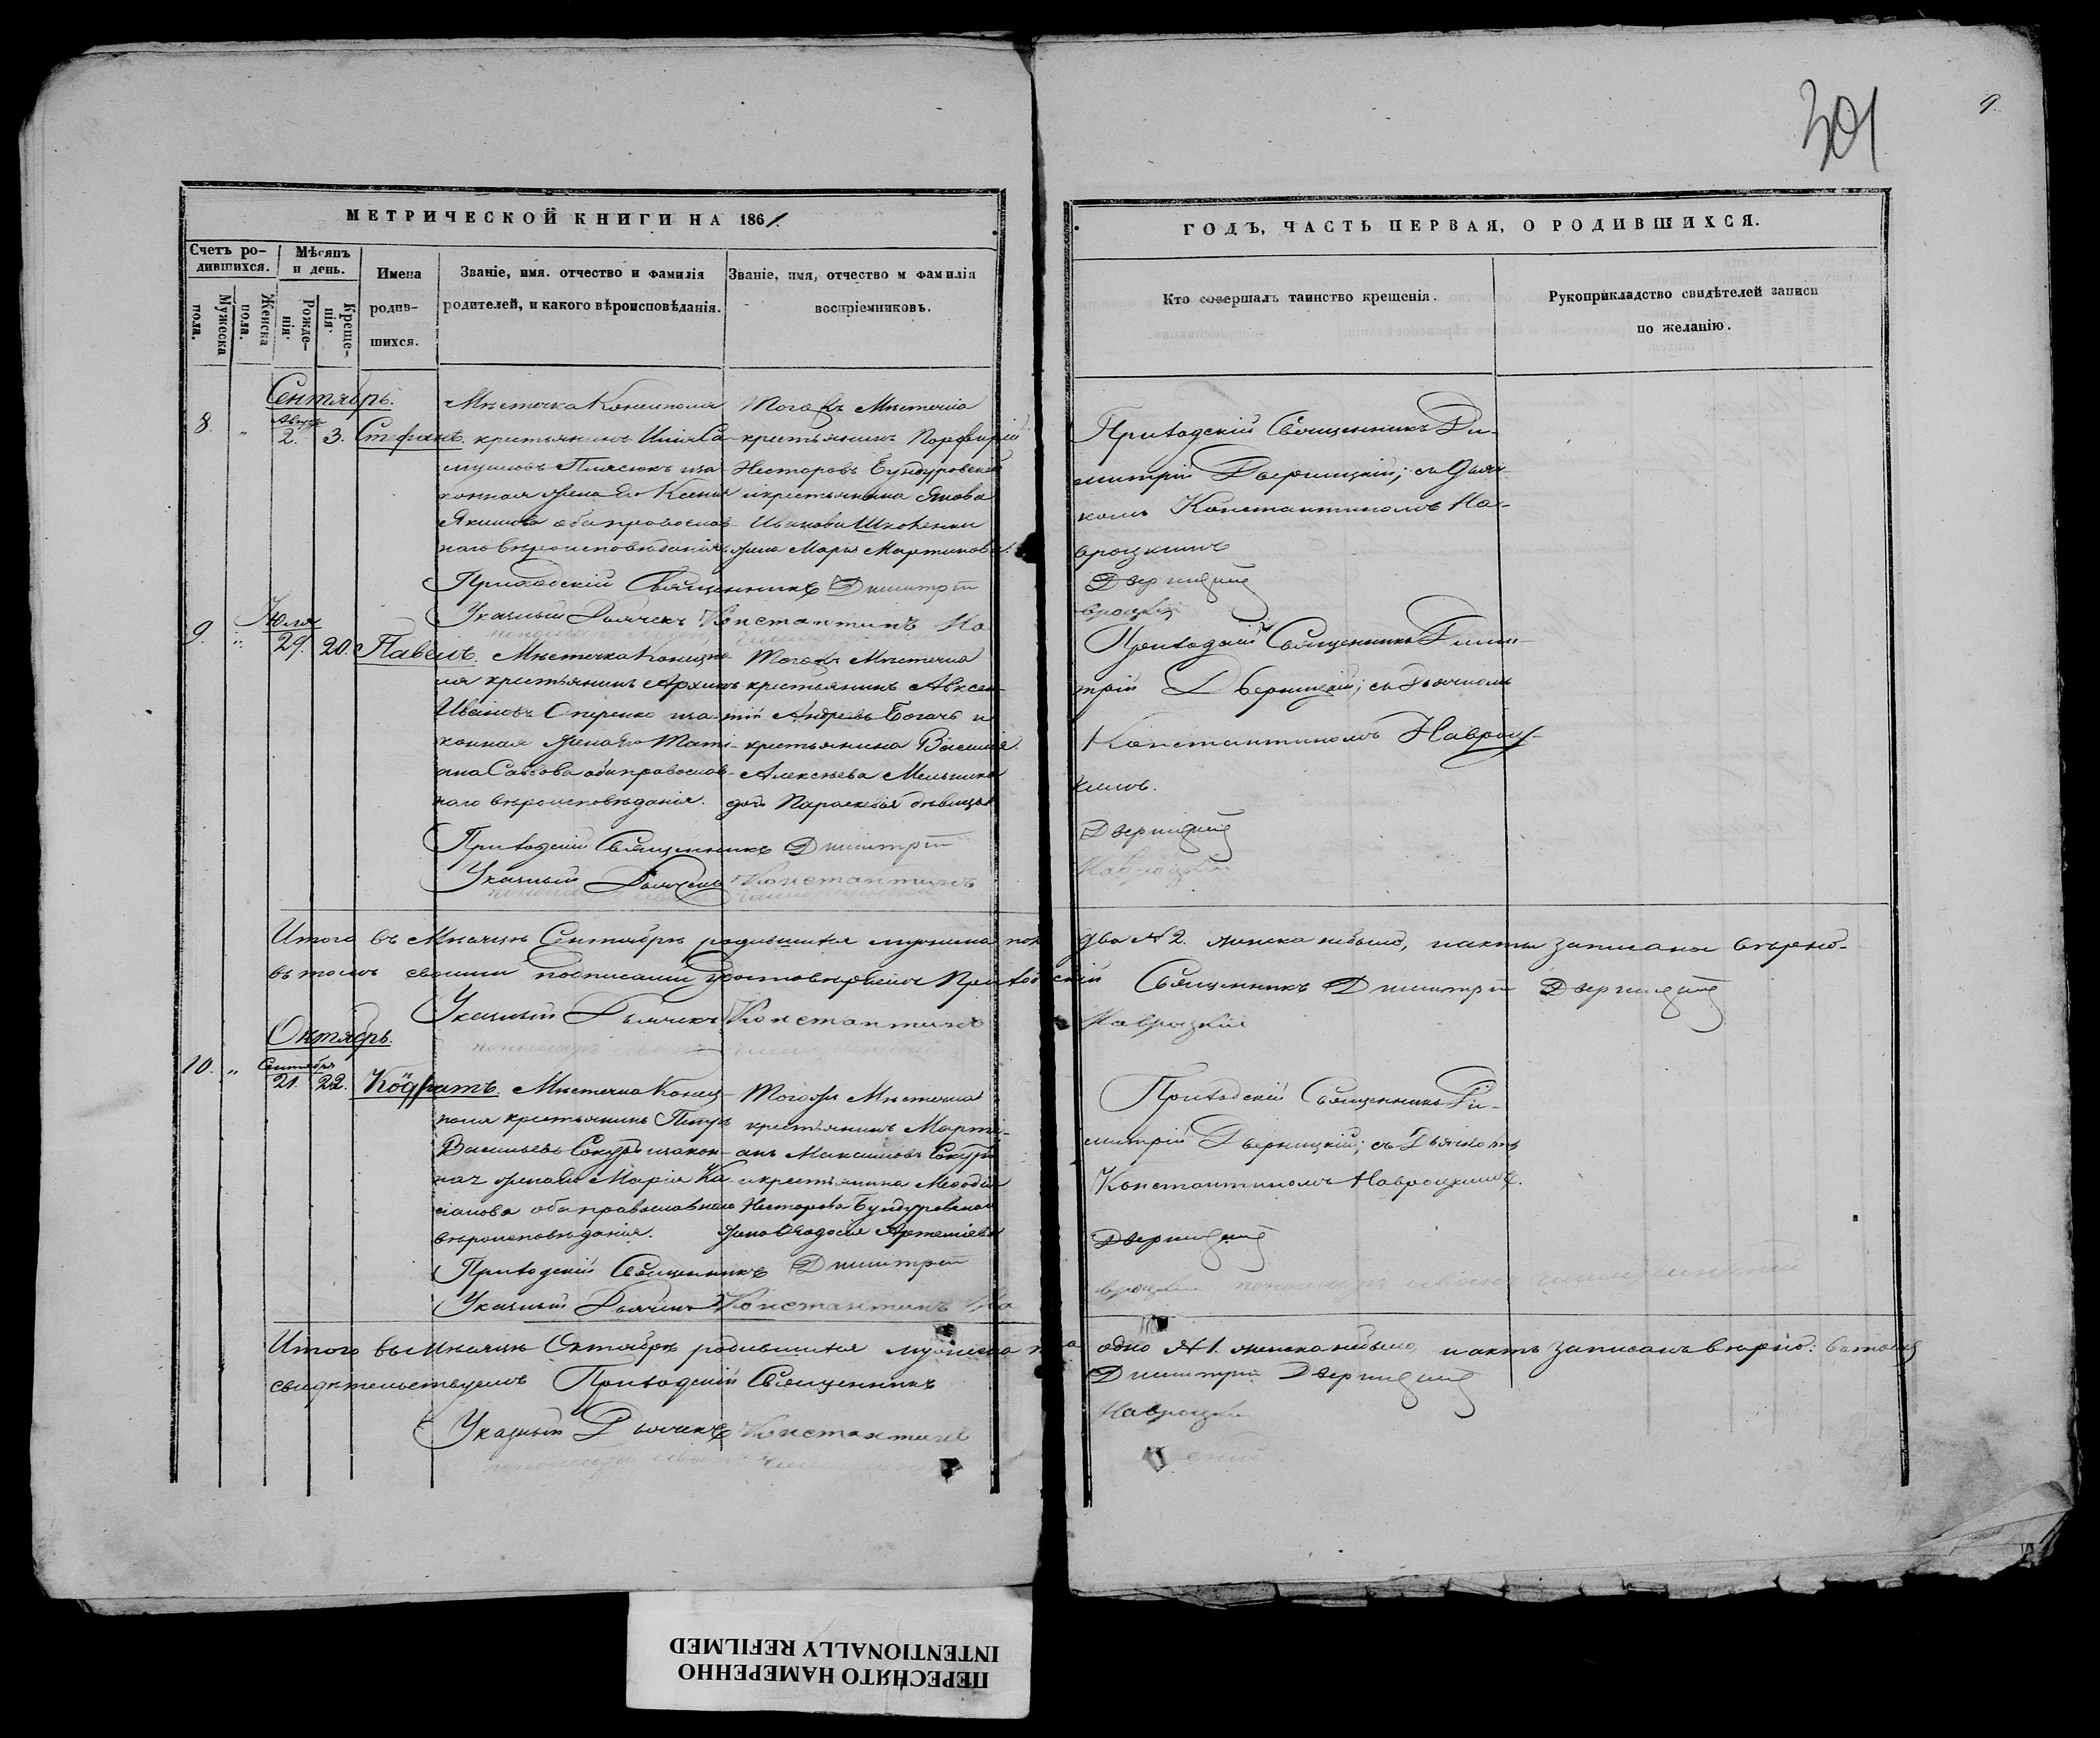 301
9.
МЕТРИЧЕСКОЙ КНИГИ НА 1861.
ГОДЪ, ЧАСТЬ ПЕРВАЯ, О РОДИВШИХСЯ.
Счетъ ро-
дившихся.
Мужеска
пола.
Женска
пола.
Мѣсяцъ
и день.
Рожде-
нія.
Креще-
нія.
Имена
родив-
шихся.
Званіе, имя. отчество и фамилія
родителей, и какого вѣроисповѣданія.
Званіе, имя, отчество и фамилія
воспріемниковъ.
Кто совершалъ таинство крещенія.
Рукоприкладство свидѣтелей записи
по желанію.
Сентябрь.
8. „ Августа 2. 3. Стефанъ.
Мѣстечка Конецполя
крестьянинъ Илія Са-
муиловъ Плясюкъ зако-
конная жена его Ксенія
Якимова оба православ-
наго вѣроисповѣданія.
Тогожъ Мѣстечка
крестьянинъ Порфирій
Несторовъ Бундуровскій
и крестьянина Якова
Иванова
жена Марія Мартинова.
Приходскій Священникъ Ди-
митрій Дверницкій; съ Дьяч-
комъ Константиномъ На-
вроцкимъ
Приходскій Священникъ Димитрій Дверницкій
Указный Дьячекъ Константинъ Навроцкій
9. „ Юля 29. 20. Павелъ.
Мѣстечка Конецпо-
ля крестьянинъ Архипъ
Ивановъ Оперенко зако-
конная жена его Тати-
ана Савова оба православ-
наго вѣроисповѣданія.
Тогожъ Мѣстечка
крестьянинъ Авксен-
тій Андреевъ Богачъ и
крестьянина Василія
Алексѣева Мельника
дочь Параскевія дѣвица
Приходскій Священникъ Дими-
трій Дверницкій; съ Дьячкомъ
Константиномъ Навроц-
кимъ.
Приходскій Священникъ Димитрій Дверницкій
Указный Дьячекъ Константинъ Навроцкій
Итого въ Мѣсяцѣ Сентябрѣ родившихся мужеска пола два №2. женска небыло, и акты записаны вѣрно-
въ томъ своими подписами удостовѣряемъ Приходскій Священникъ Димитрій Дверницкій
Указный Дьячекъ Константинъ Навроцкій
Октябрь.
10. „ Сентября 21. 22. Кодратъ.
Мѣстечка Конец-
поля крестьянинъ Петръ
Васильевъ Сокуръ закон-
ная жена его Марія Ка-
сіанова оба православнаго
вѣроисповѣданія.
Тогожъ Мѣстечка
крестьянинъ Марти-
анъ Максимовъ Сокуръ
и крестьянина Меѳодія
Несторова Бундуровскаго
жена Ѳеодосія Артеміева
Приходскій Священникъ Ди-
митрій Дверницкій; съ Дьячкомъ
Константиномъ Навроцкимъ.
Приходскій Священникъ Димитрій Дверницкій
Указный Дьячекъ Константинъ Навроцкій
Итого въ Мѣсяцѣ Октябрѣ родившихся мужеска пола одно №1. женска небыло, и актъ записанъ вѣрно: въ томъ
свидѣтельствуемъ Приходскій Священникъ Димитрій Дверницкій
Указный Дьячекъ Константинъ Навроцкій
ПЕРЕСНЯТО НАМЕРЕННО
INTENTIONALLY REFILMED